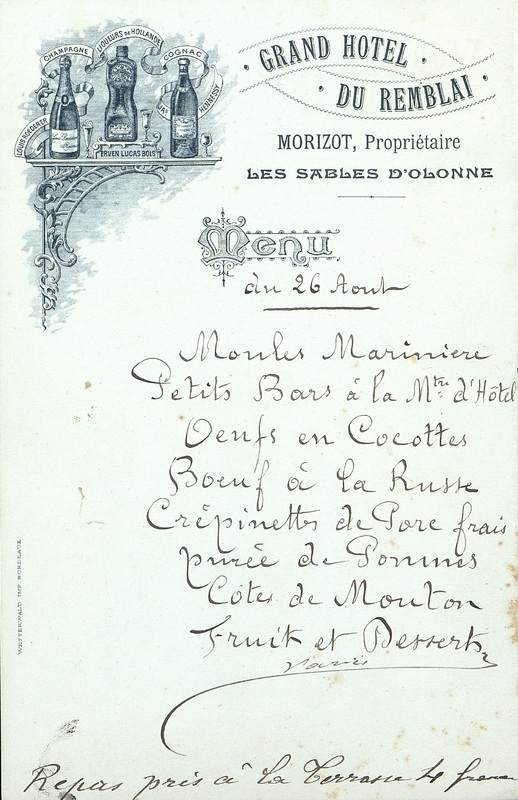 CHAMPAGNE
LIQUEURS DE HOLLANDE
COGNAC
LOUIS ROEDERER
ERVEN LUCAS BOLS
JAs HENNESSY
GRAND HOTEL
DU REMBLAI
MORIZOT, Propriétaire
LES SABLES D'OLONNE
Menu
du 26 Aout
Moules Mariniere
Petits Bars à la Mtre d'Hôtel
Oeufs en Cocottes
Boeuf à la Russe
Crépinettes de Porc frais
purée de Pommes
Côtes de Mouton
Fruit et Desserts
variés
Repas pris à la Terrasse 4 francs
WETTERWALD IMP. BORDEAUX